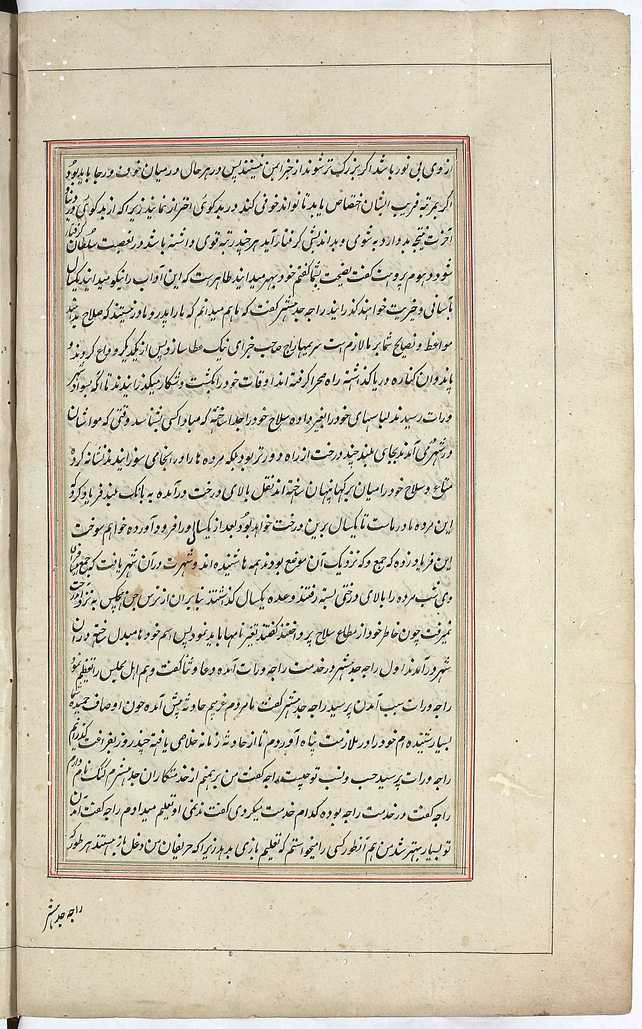 از وی بی نور باشد اگر بزرک تر شوند از خبر ایمن نیستند پس در هر حال در میان خوف و رجا باید بود
اگر بمرتبه قریب ایشان اختصاص یابد تا تواند خوبی کند در بدکوی احتراز نماید زیرا که از بدکوی در دنیا و
آخرت نتیجه بد دارد و به شومی و بداندیشی کرفتار آید هر چند رتبه قوی داشته باشد در معصیت سلطان کرفتار
شود دهوم پروهت کفت نصیحت بشما کفتم خود بهتر میدانید ظاهر است که این آداب را نیکو میدانید یکسال
بآسانی و خیریت خواهند کذرانید راجه جدهشتر کفت که ما هم میدانم که ما را پدر و مادر نیستند که صلاح بدهند
مواعظ و نصایح شما بر ما لازم است سریمهاراج صاحب جزای نیک عطا سازد پس از یکدیکر وداع کردند و
پاندوان کناره دریا کذاشته راه صحرا کرفته اند اوقات خود را بکشت و شکار میکذرانیدند تا آنکه بسواد شهر
ورات رسیدند لباسهای خود را تغیر داده سلاح خود را جدا ساخته که مبادا کسی بشناسد وقتی که مواشان
در شهر می آمدند بجای بلند چند درخت از راه دورتر بود بلکه مرده ها را در انجا می سوزانیدند نشانه کرده
متاع و سلاح خود را میان برکها پنهان ساخته اند نقل بالای درخت درآمده به بانک بلند فریاد کرد که
این مرده مادر ماست تا یکسال برین درخت خواهد بود بعد از یکسال ورا فرود آورده خواهم سوخت
این فریاد زده که جمع و که نزدیک آن موضع بودند همه ها شنیده اند و شهرت در آن شهر یافت که جمع مسافران
وی شب مرده را بالای درختی بسته رفتند و وعده یکسال کذاشتند بنابران از ترس جن هیچکس به نزد آن درخت
نمیرفت چون خاطر خود از مطاع سلاح پرداختند کفتند تغیر نامها باید نمود پس اسم خودها مبدل ساخته در آن
شهر درآمدند اول راجه جدهشتر در خدمت راجه ورات آمده دعا و ثنا کفت و هم اهل مجلس را تعظیم نمود
راجه ورات سبب آمدن پرسید راجه جدهشتر کفت ما مردم غریبم حادثه پیش آمده چون اوصاف حمیده شما
بسیار شنیده ام خود را در ملازمت پناه آوردم تا از حادثه زمانه خلاصی یافته چند روز بفراغت کذرانم
راجه ورات پرسید حسب و نسب تو چیست راجه کفت من برهمنم از خدمتکاران جدهشترم کنک نام دارم
راجه کفت در خدمت راجه بوده کدام خدمت میکردی کفت ندیمی او تعلیم میدادم راجه کفت آمدن
تو بسیار بهتر شد من هم آنطور کسی را میخواستم که تعلیم بازی بدهد زیرا که حریفان من دغل باز هستند هر طور که
راجه جدهشتر